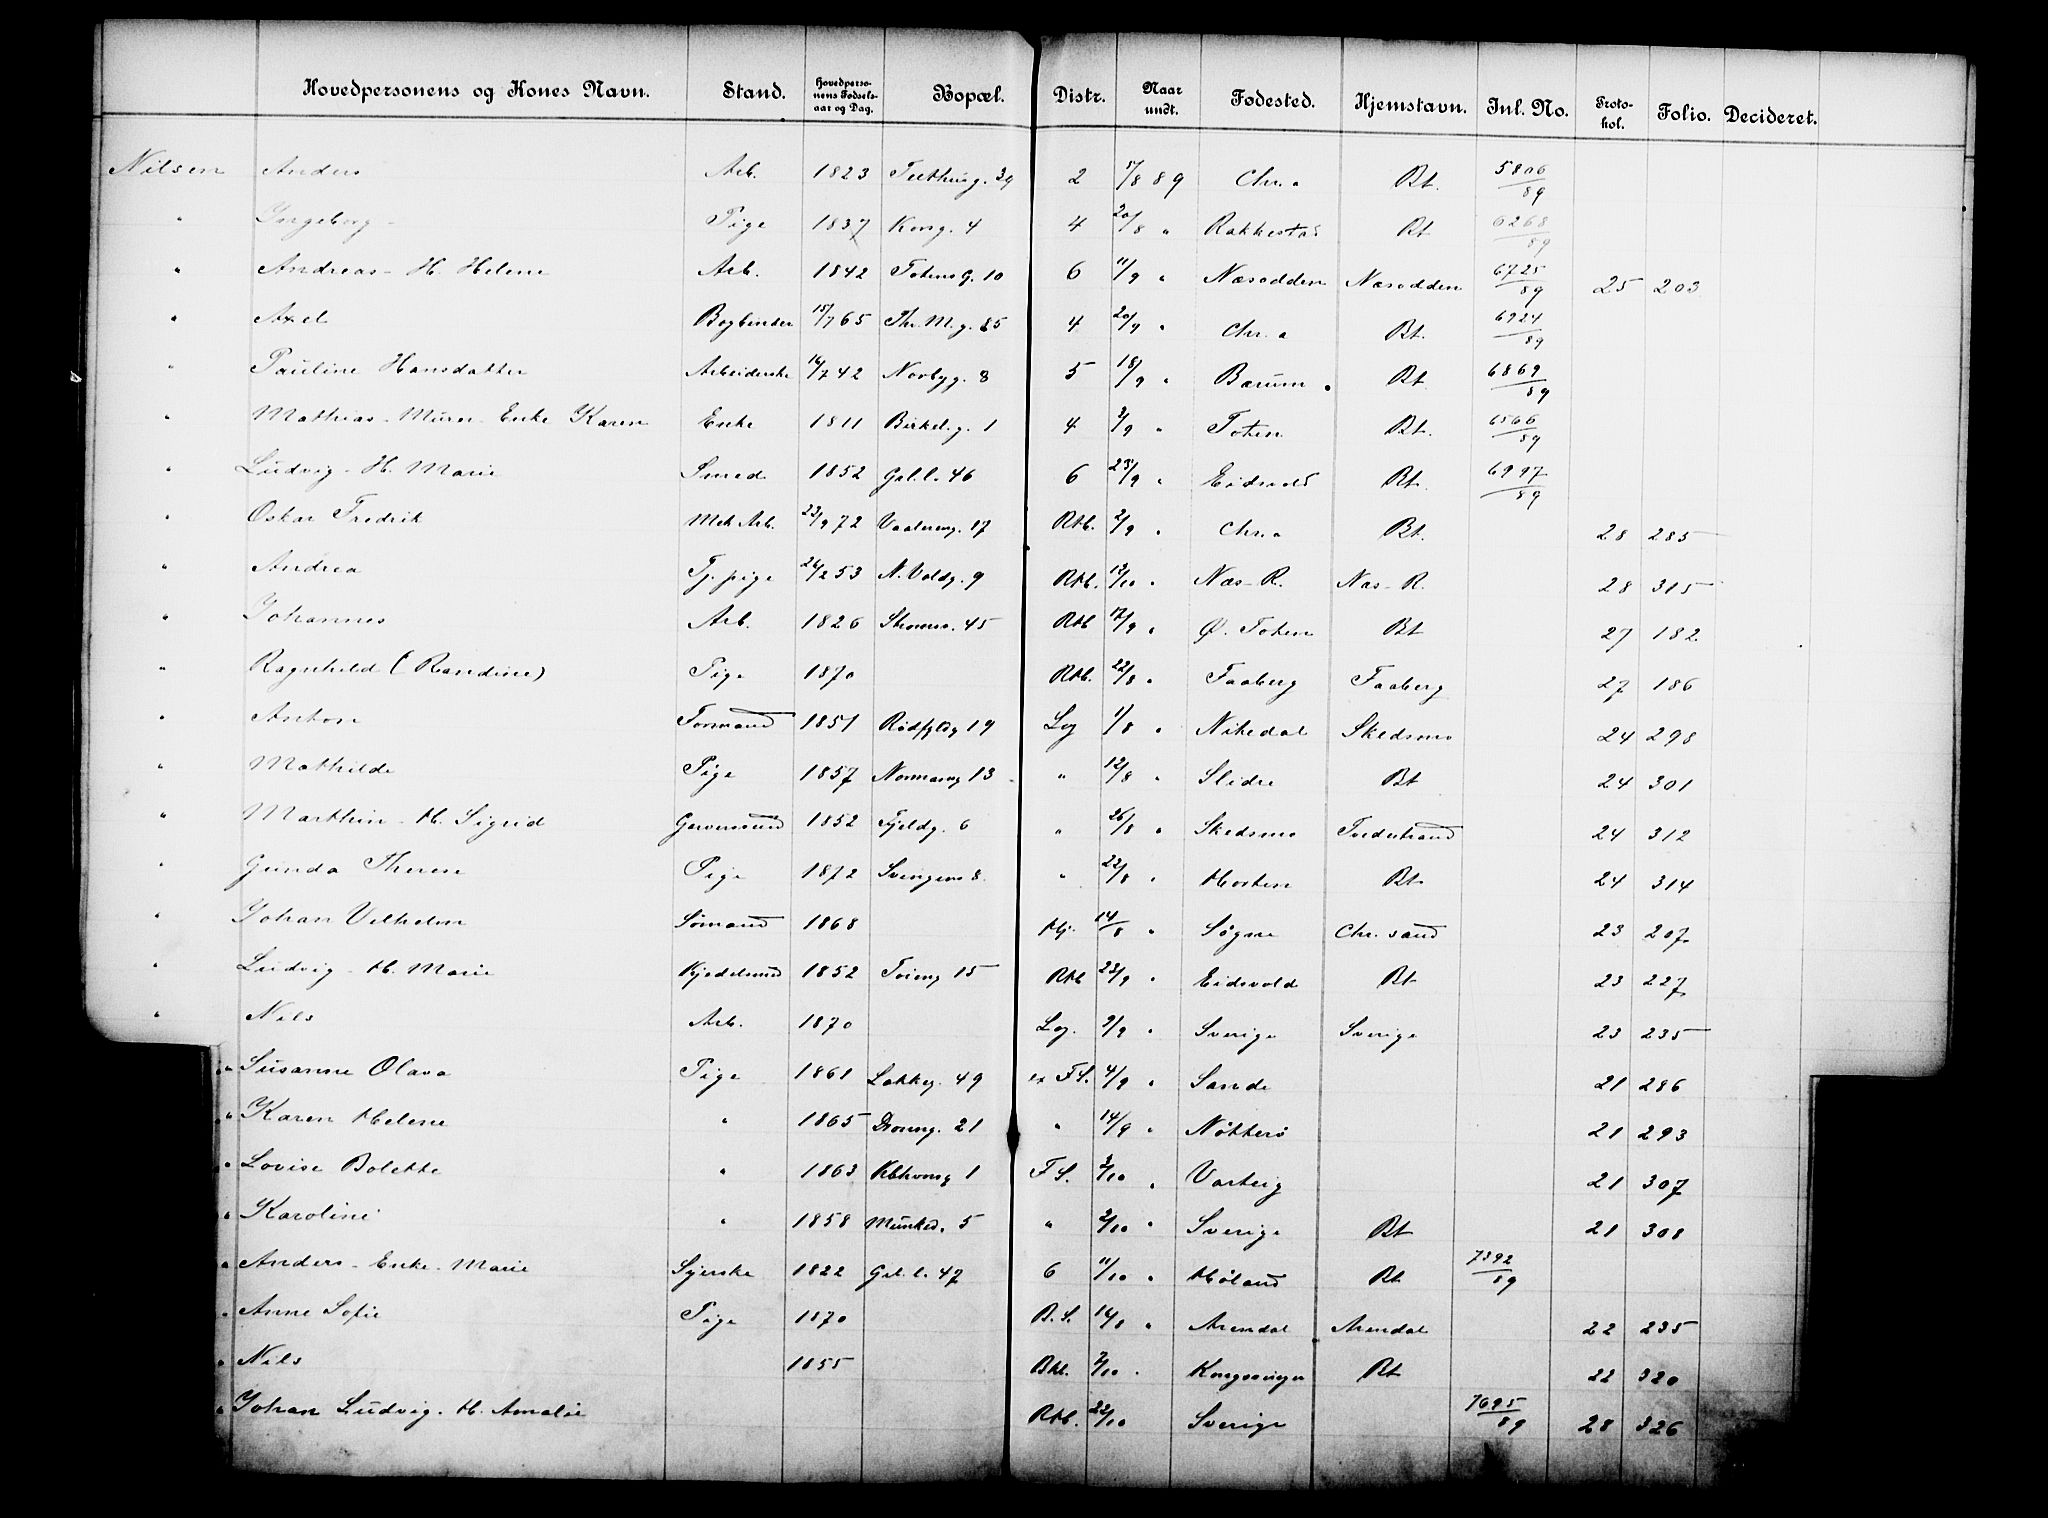 Hovedpersonens og Kones Navn. Stand. Hovedperso-nens Fødsels-aar og Dag. Bopæl. Distr. Naar undt. Fødested. Hjemstavn. Inl. No. Proto-kol. Folio. Decideret.
Nilsen Anders Arb. 1823 2 5/8 89 Chr.a Bt. 5806/89
" Ingeborg Pige 1837 Kong. 4 4 20/8 " Rakkestad Bt 6268/89
" Andreas - H. Helene Arb. 1842 Totensg. 10 6 11/9 " Næsodden Næsodden 6725/89 25 203
" Axel Bogbinder 15/7 65 Thr. M. g. 85 4 20/9 " Chr.a Bt. 6924/89
" Pauline Hansdatter Arbeiderske 16/7 42 Norbyg. 8 5 18/9 " Bærum Bt. 6869/89
" Mathias - Murer - Enke Karen Enke 1811 Birkel.g. 1 4 3/9 " Toten Bt. 6566/89
" Ludvig - H. Marie Smed 1852 Grl.l. 46 6 23/9 " Eidsvold Bt. 6997/89
" Oskar Fredrik Mek Arb. 22/9 72 Vaalereng. 17 Rkb. 2/9 " Chr.a Bt. 28 285
" Andrea Tj. pige 26/2 53 N. Voldg. 9 Rkb. 12/10 " Næs - R. Næs - R. 28 315
" Johannes Arb. 1826 Strømsv. 45 Rkb 17/9 " Ø. Toten Bt 27 182
" Ragnhild (Randine) Pige 1870 Rkb. 22/8 " Faaberg Faaberg 27 186
" Anton Formand 1851 Rødfyldg 19 Lg 1/8 " Nitedal Skedsmo 24 298
" Mathilde Pige 1857 Normanng 13 " 12/8 " Slidre Bt 24 301
" Marthin - H. Sigrid Garversvend 1852 Fjeldg. 6 " 26/8 " Skedsmo Tvedestrand 24 312
" Gunda Therese Pige 1872 Svingen 8 " 22/8 " Horten Bt 24 314
" Johan Vilhelm Sømand 1868 Hj. 14/8 " Søgne Chr.sand 23 207
" Ludvig - H. Marie Kjedelsmed 1852 Tøieng 15 Rkb 23/9 " Eidsvold Bt 23 227
" Nils Arb. 1870 Lg. 9/9 " Sverige Sverige 23 235
" Susanne Olava Pige 1861 Løkkeg. 49 ex F.S. 4/9 " Sande 21 286
" Karen Helene " 1865 Dronng. 21 " 14/9 " Nøtterø 21 293
" Lovise Bolette " 1863 1 F S. 3/10 " Varteig 21 307
" Karoline " 1858 Munked. 5 " 2/10 " Sverige Bt 21 308
" Anders - Enke - Marie Syerske 1822 Grl.l. 47 6 11/10 " Høland Bt. 7392/89
" Anne Sofie Pige 1870 B. S. 16/8 " Arendal Arendal 22 235
" Nils 1855 Bkl. 7/10 " Kongsvinger Bt 22 320
" Johan Ludvig. H. Amalie Rkb. 22/10 Sverige 7695/89 28 326